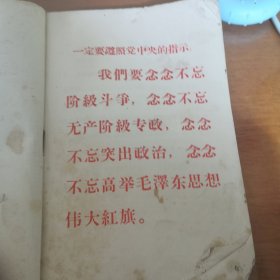 一定要遵照党中央的指示
我們要念念不忘
阶級斗爭，念念不忘
无产阶級专政，念念
不忘突出政治，念念
不忘高举毛澤东思想
伟大紅旗。